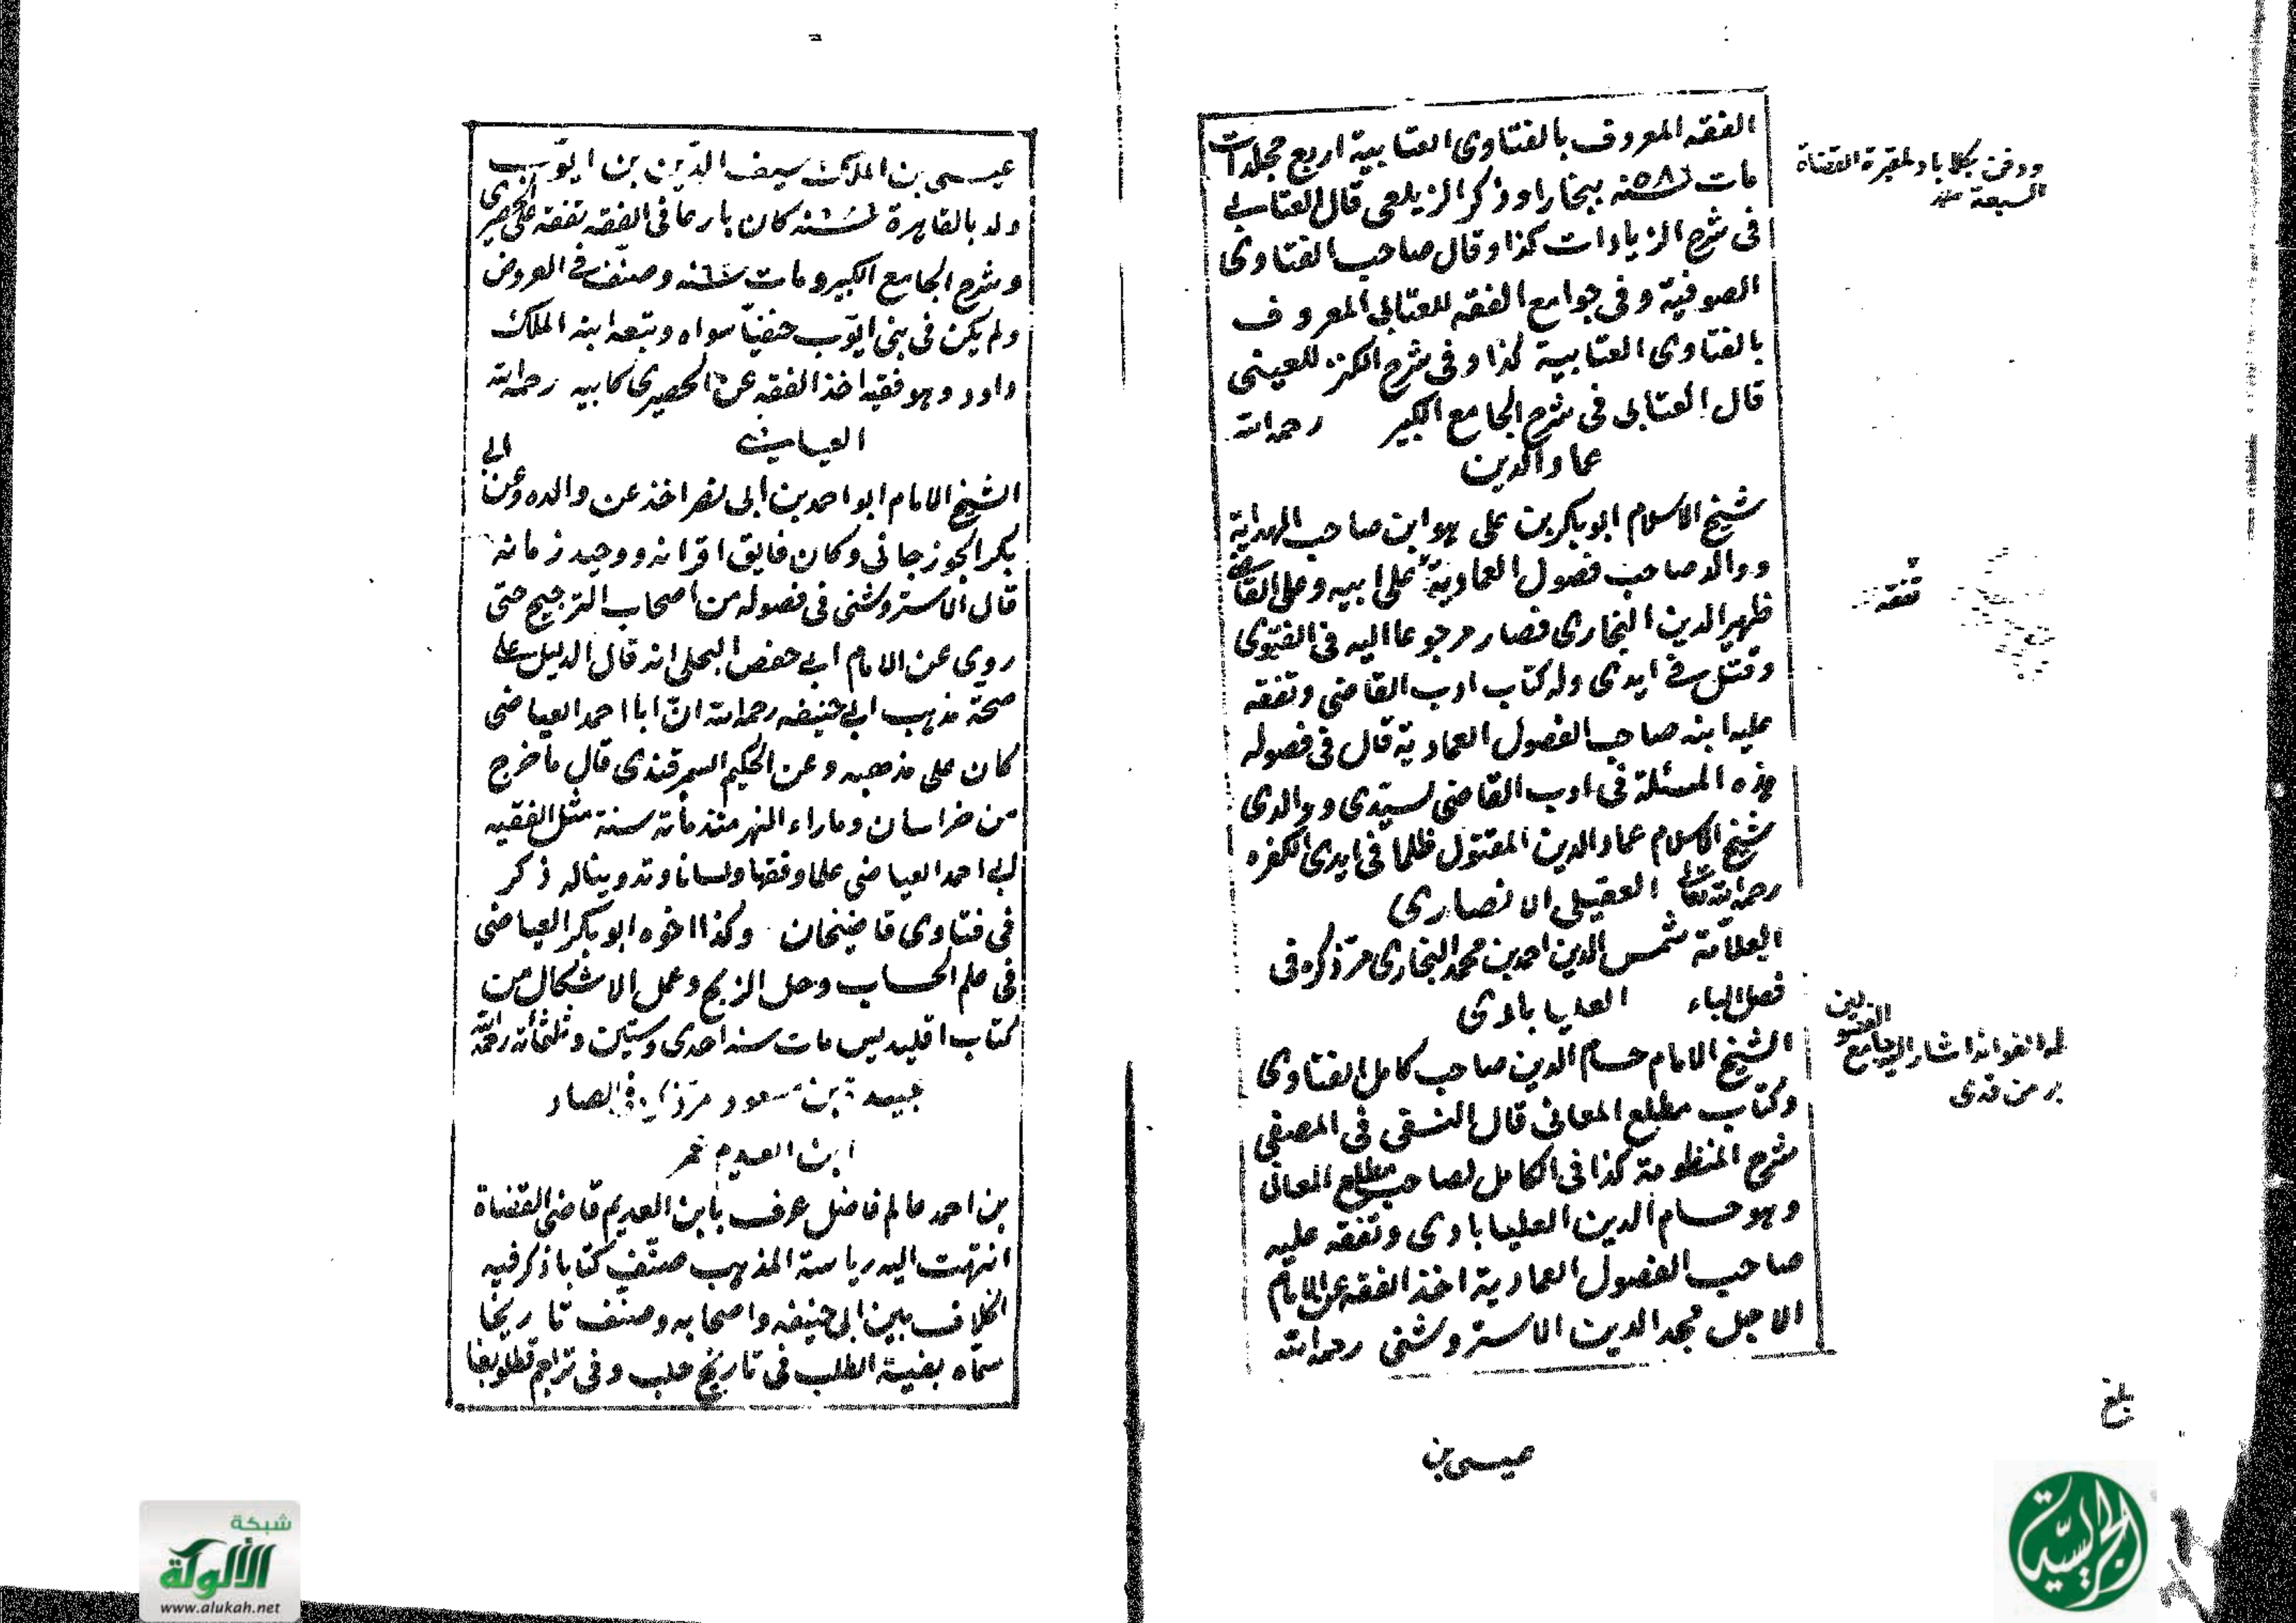 الفقه المعروف بالفتاوى العتابية اربع مجلدات
مات ٥٨٦ سنه ببخارا وذكر الزيلعى قال العتابى
فى شرح الزيادات كذا وقال صاحب الفتاوى
الصوفية وفى جوامع الفقه للعتابى المعروف
بالفتاوى العتابية كذا وفى شرح الكنز للعينى
قال العتابى فى شرح الجامع الكبير رحمه الله
عماد الدين
شيخ الاسلام ابو بكر بن على هو ابن صاحب الهداية
ووالد صاحب فصول العمادية على ابيه وعلى القاضى
ظهير الدين البخارى فصار مرجوعا اليه فى الفتوى
وقتل فى ايدى وله كتاب ادب القاضى وتفقه
عليه ابنه صاحب الفصول العمادية قال فى فصوله
هذه المسئلة فى ادب القاضى لسيدى ووالدى
شيخ الاسلام عماد الدين المقتول ظلما فى ايدى الكفره
رحمه الله تعالى العقيلى الانصارى
العلامة شمس الدين احمد بن محمد البخارى مر ذكره فى
فصل الباء العليابادى
الشيخ الامام حسام الدين صاحب كامل الفتاوى
وكتاب مطلع المعانى قال النسفى فى المصفى
شرح المنظومة كذا فى الكامل لصاحب مطلع المعانى
وهو حسام الدين العليابادى وتفقه عليه
صاحب الفصول العمادية اخذ الفقه عن الامام
الاجل مجد الدين الاستروشنى رحمه الله
عيسى بن
ودفن بكلاباد لمقبرة القضاة
السبعة
تفقه
له الفوائد اشار اليه جامع
الفصولين
بر من قدى
بلغ
عيسى بن الملك سيف الدين بن ايوب
ولد بالقاهرة سنه كان بارعا فى الفقه تفقه على الحصيرى
وشرح الجامع الكبير ومات سنه وصنف فى العروض
ولم يكن فى بنى ايوب حنفيا سواه وتبعه ابنه الملك
داود وهو فقيه اخذ الفقه عن الحصيرى كابيه رحمه الله
العياضى
الشيخ الامام ابو احمد بن ابى نصر اخذ عن والده وعن ابى
بكر الجوزجانى وكان فايق اقرانه ووحيد زمانه
قال الاستروشنى فى فصوله من اصحاب الترجيح حتى
روى عن الامام ابى حفص البجلى انه قال الدليل على
صحة مذهب ابى حنيفه رحمه الله ان ابا احمد العياضى
كان على مذهبه وعن الحكيم السمرقندى قال ما خرج
من خراسان وماراء النهر منذ مأته سنة مثل الفقيه
ابى احمد العياضى علما وفقها ولسانا وتدوينا له ذكر
فى فتاوى قاضيخان وكذا اخوه ابو بكر العياضى
فى علم الحساب وحل الزيج وعمل الاشكال من
كتاب اقليديس مات سنه احدى وستين وثلثمأته رحمه الله
عبيدة بن مسعود مر ذكره فى الصاد
ابن العديم عمر
بن احمد عالم فاضل عرف بابن العديم قاضى القضاة
انتهت اليه رياسة المذهب صنف كتابا ذكر فيه
الخلاف بين ابى حنيفه واصحابه وصنف تاريخا
سماه بغية الطلب فى تاريخ حلب وفى تراجم قطلوبغا
شبكة
الألوكة
www.alukah.net